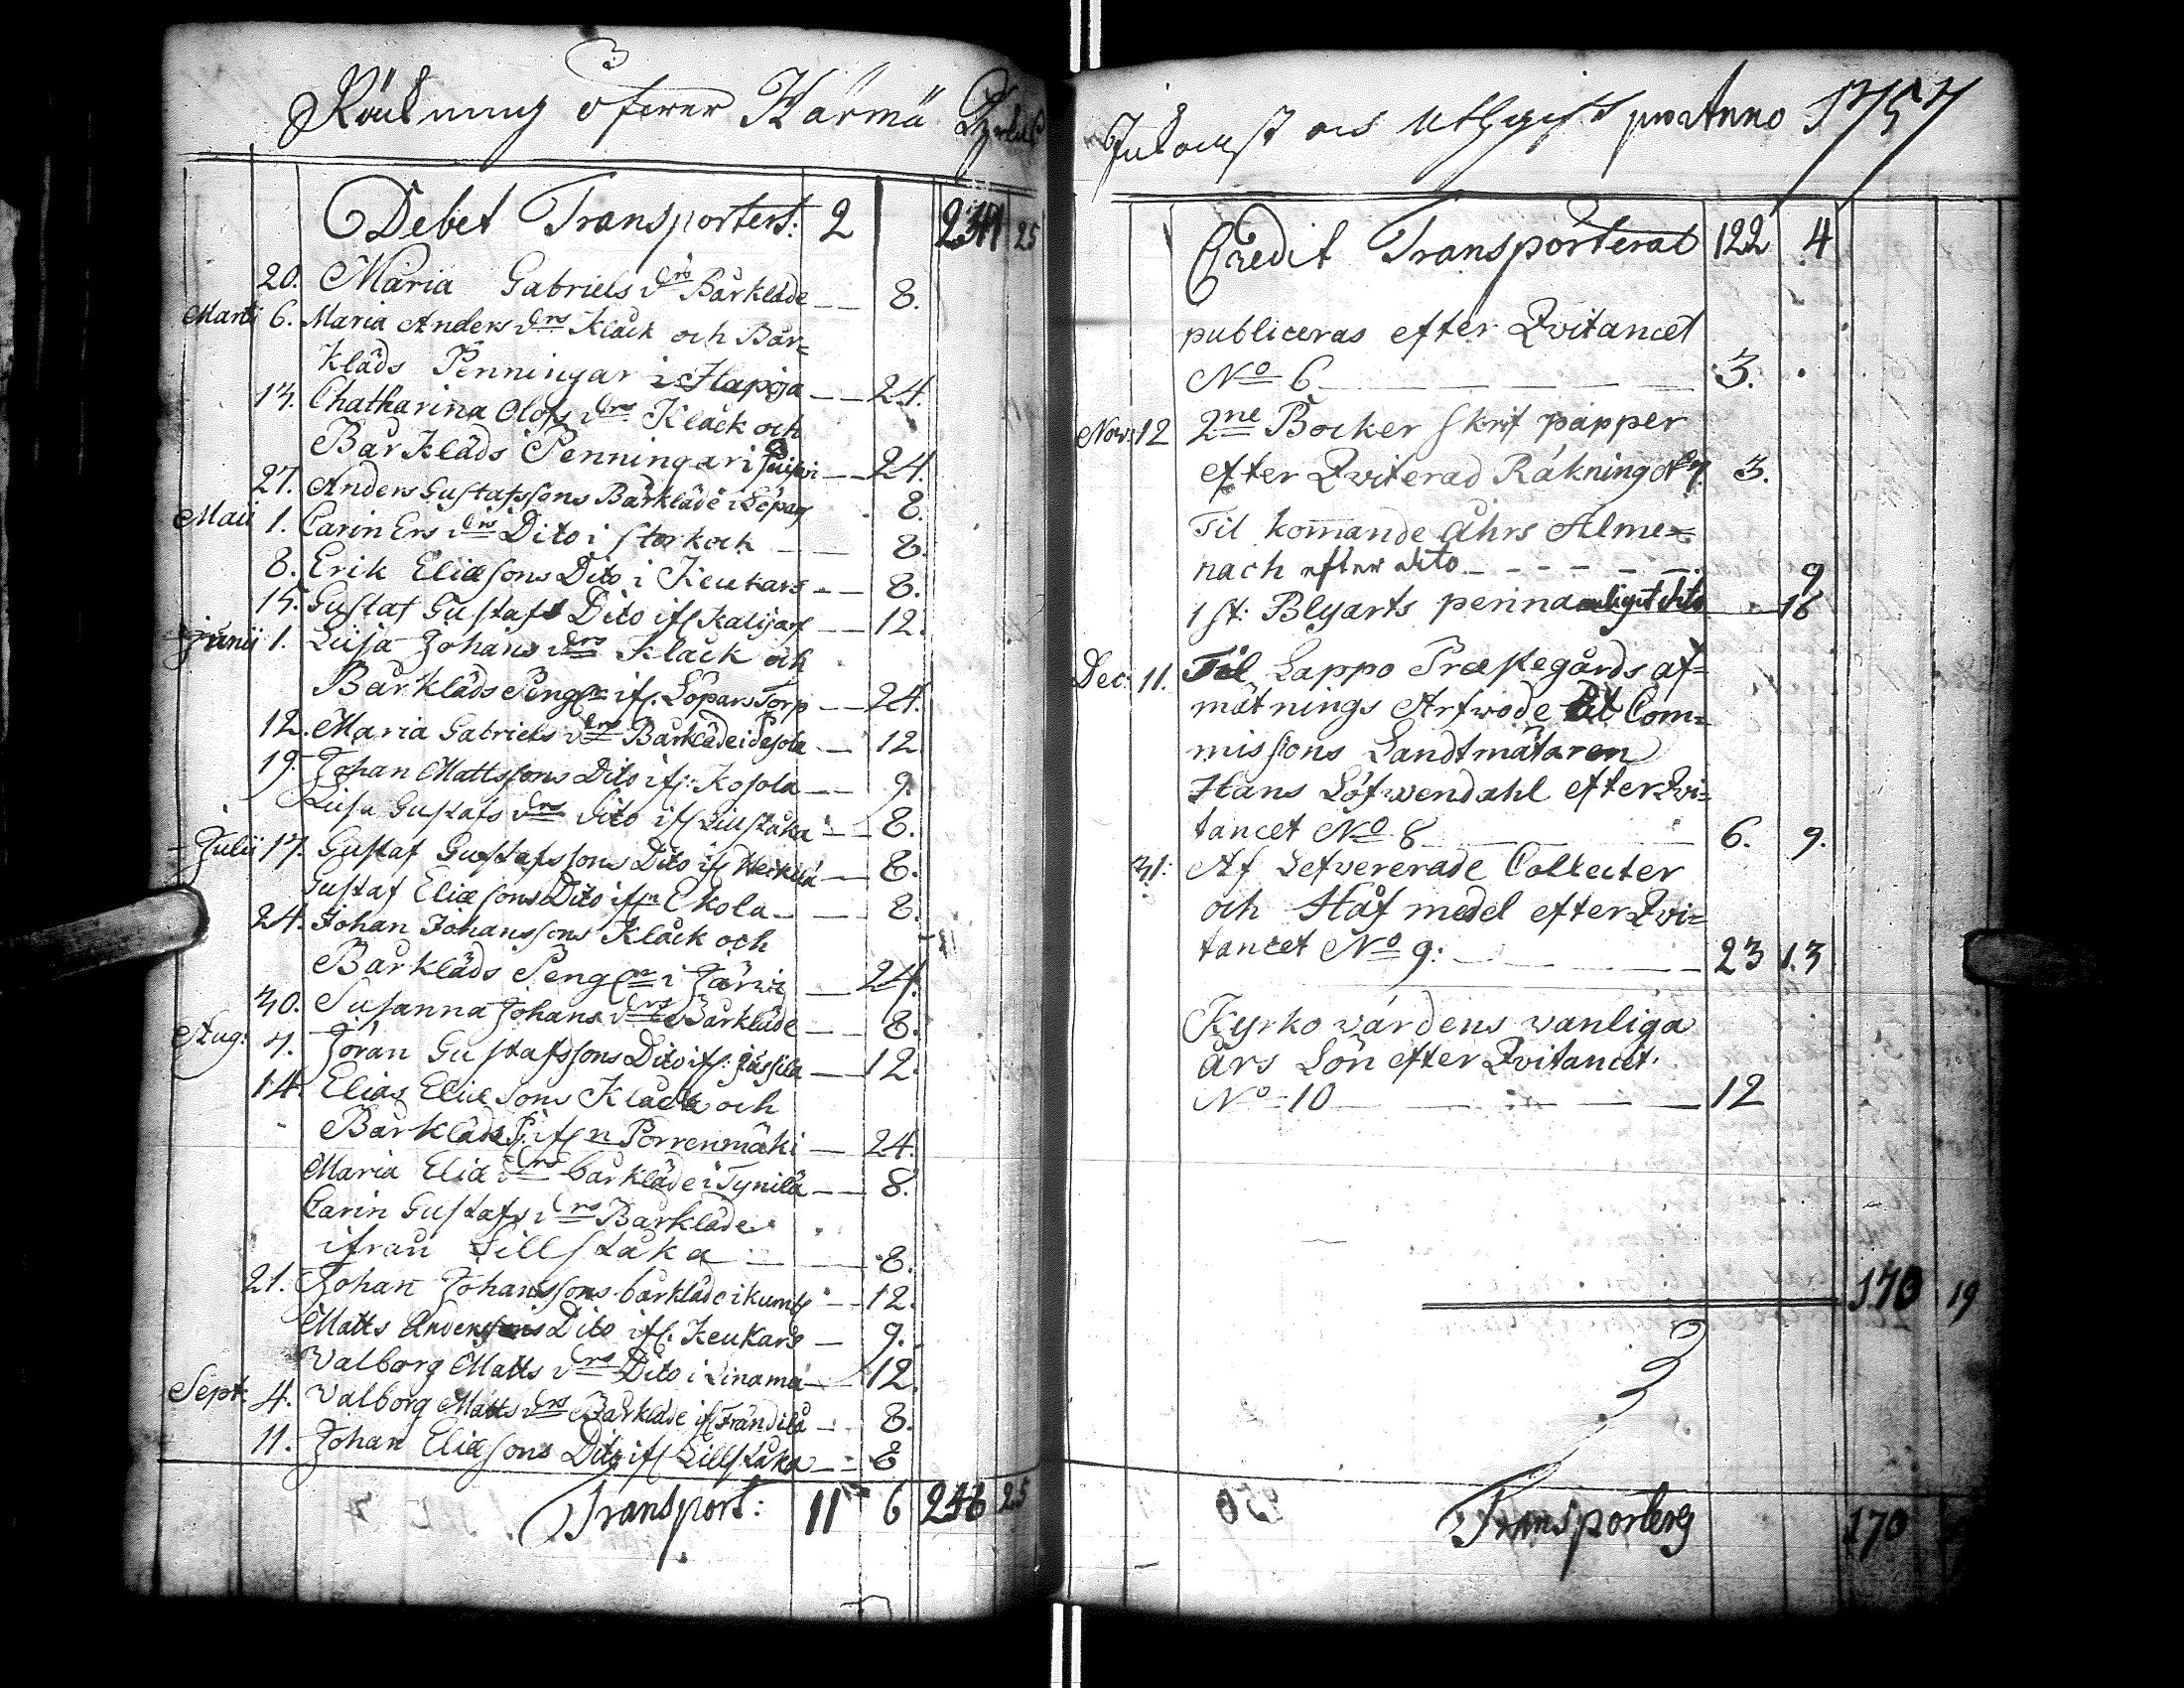 Räkning öfwer Härmä Kyrkas
Debet Transportert: 2 234 25
20. Maria Gabriels drs Bårkläde — 8.
Marti 6. Maria Anders drs Klåck och Bår=
kläds Penningar i Hapoja — 24.
13. Chatharina Olofs drs Klåck och
Bår Kläds Penningar i — 24.
27. Anders Gustafssons Bårkläde i — 8.
Maii 1. Carin Ers drs Dito i Storkoch — 8.
8. Erik Eliæ sons Dito i Keukars — 8.
15. Gustaf Gustafs Dito if Kalijarf — 12.
Junii 1. Liisa Johans drs Klåck och
Bårkläds Pengr if. Lopars Torp — 24.
12. Maria Gabriels drs Bårkläde i Pesola — 12
19. Johan Mattssons Dito if: Kosola — 9.
Liisa Gustafs drs Dito if Lillstaka — 8.
Julii 17. Gustaf Gustafssons Dito if Heikilä — 8.
Gustaf Eliæ sons Dito ifrn Ekola — 8.
24. Johan Johanssons Klåck och
Bårkläds Pengr i Järwi — 24.
30. Susanna Johans drs Bårkläde — 8.
Aug: 7. Jöran Gustafssons Dito if: Jussila — 12.
14. Elias Eliæ sons Klåck och
Bårkläds P. ifrn Porrenmäki — 24.
Maria Eliæ drs bårkläde i Tynilä — 8.
Carin Gustafs drs Bårkläde
ifrån Lillstaka — 8.
21. Johan Johanssons bårkläde i kump — 12.
Matts Anderssons Dito if. Keukars — 9.
Valborg Matts drs Dito i Linama — 12.
Sept: 4. Valborg Matts drs Bårkläde if Frandila — 8.
11. Johan Eliæ sons Dito if Lillstaka — 8
Transport: 11 6 246 25
Inkomst och Uthgift pro Anno 1757
Credit Transporterat 122 4
publiceras efter Qvitancet
No 6 — 3.
Nov: 12 2ne Böcker Skrif papper
efter Qviterad Räkning No 7. 3.
Til kommande åhrs Alme=
nach efter dito — 9
1 st: Blyarts penna enligt dito — 16
Dec: 11. Til Lappo Præstegårds af=
mätnings Arfwode til Com=
missions Landtmätaren
Hans Löfwendahl efter Qvi=
tancet No 8 — 6. 9.
31: Af Lefvererade Collecter
och Håf medel efter Qvi=
tancet No 9: — 23 13
Kyrkovärdens wanliga
års Lön efter Qvitancet
No 10 — 12
170 19
Transporteres 170